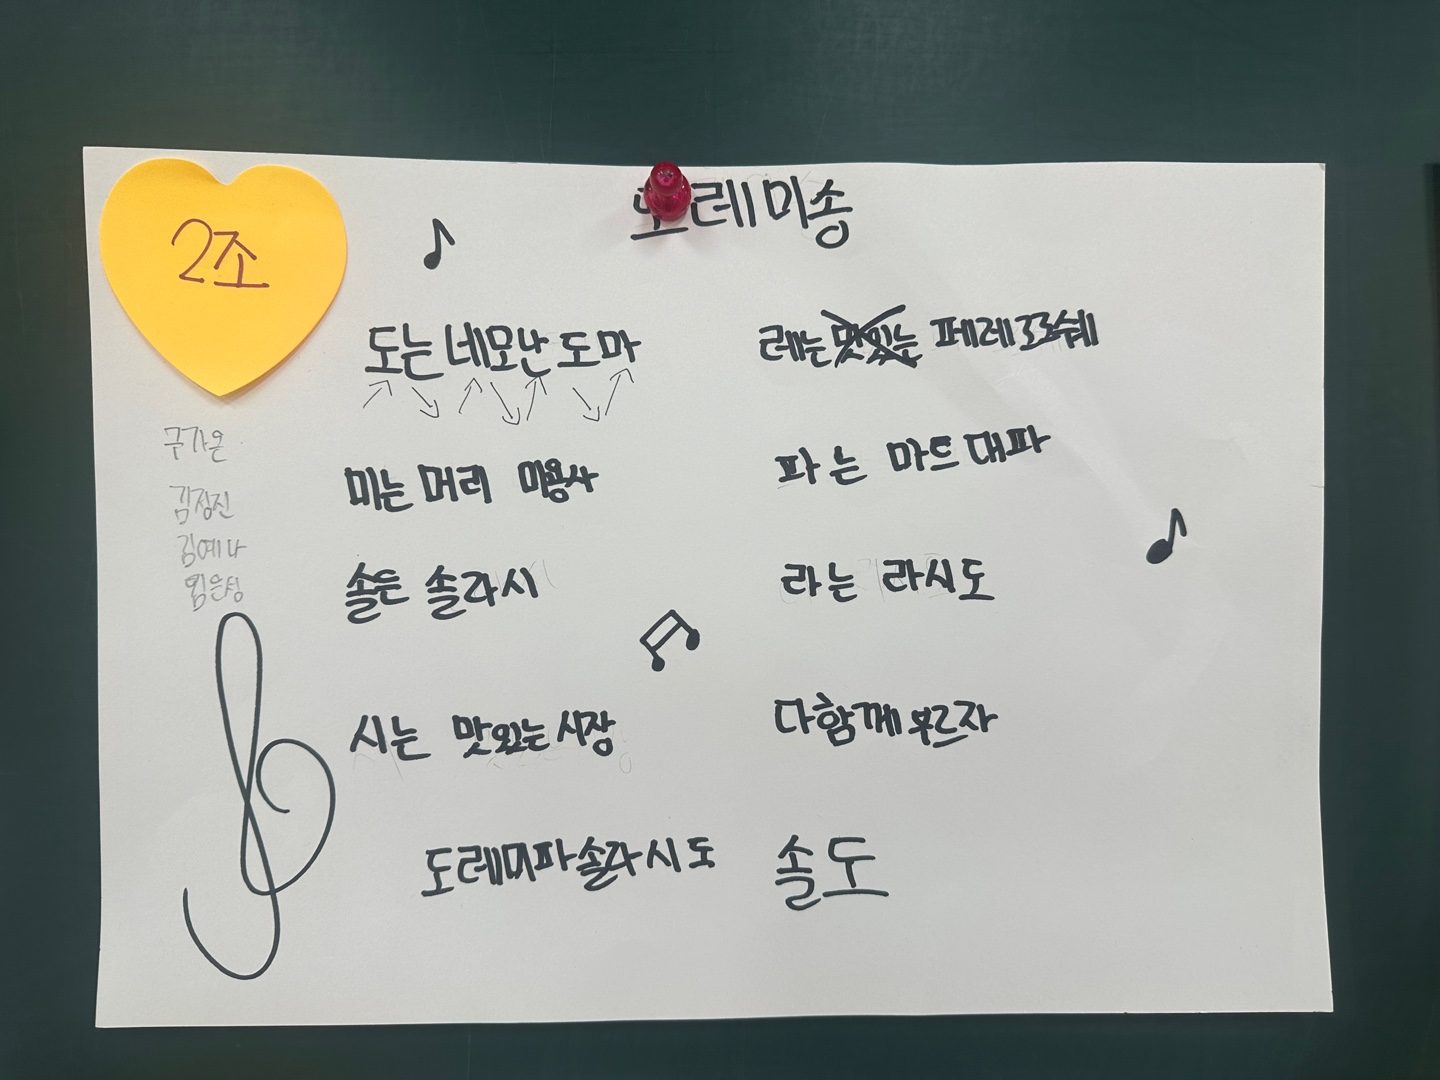 2조
도레미송
도는 네모난 도마
레는 맛있는 페레로로쉐
미는 머리 미용사
파는 마트 대파
솔은 솔라시
라는 라시도
시는 맛있는 시장
다함께 부르자
도레미파솔라시도 솔도
구가온
김정진
김예나
임은성